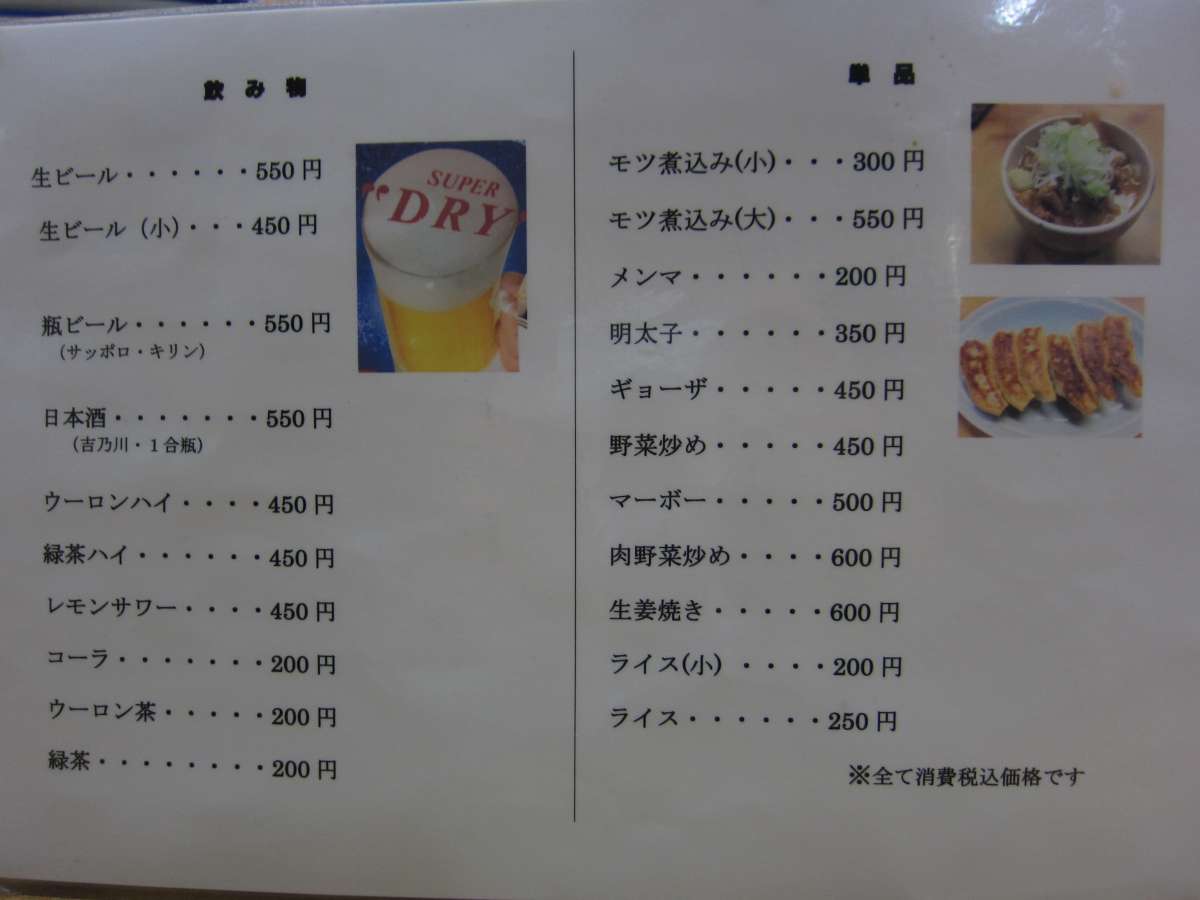 飲み物
生ビール・・・・・・550円
生ビール（小）・・・450円
SUPER
"DRY"
瓶ビール・・・・・・550円
（サッポロ・キリン）
日本酒・・・・・・・550円
（吉乃川・１合瓶）
ウーロンハイ・・・・450円
緑茶ハイ・・・・・・450円
レモンサワー・・・・450円
コーラ・・・・・・・200円
ウーロン茶・・・・・200円
緑茶・・・・・・・・200円
単品
モツ煮込み(小)・・・300円
モツ煮込み(大)・・・550円
メンマ・・・・・・200円
明太子・・・・・・350円
ギョーザ・・・・・450円
野菜炒め・・・・・450円
マーボー・・・・・500円
肉野菜炒め・・・・600円
生姜焼き・・・・・600円
ライス(小) ・・・・200円
ライス・・・・・・250円
※全て消費税込価格です